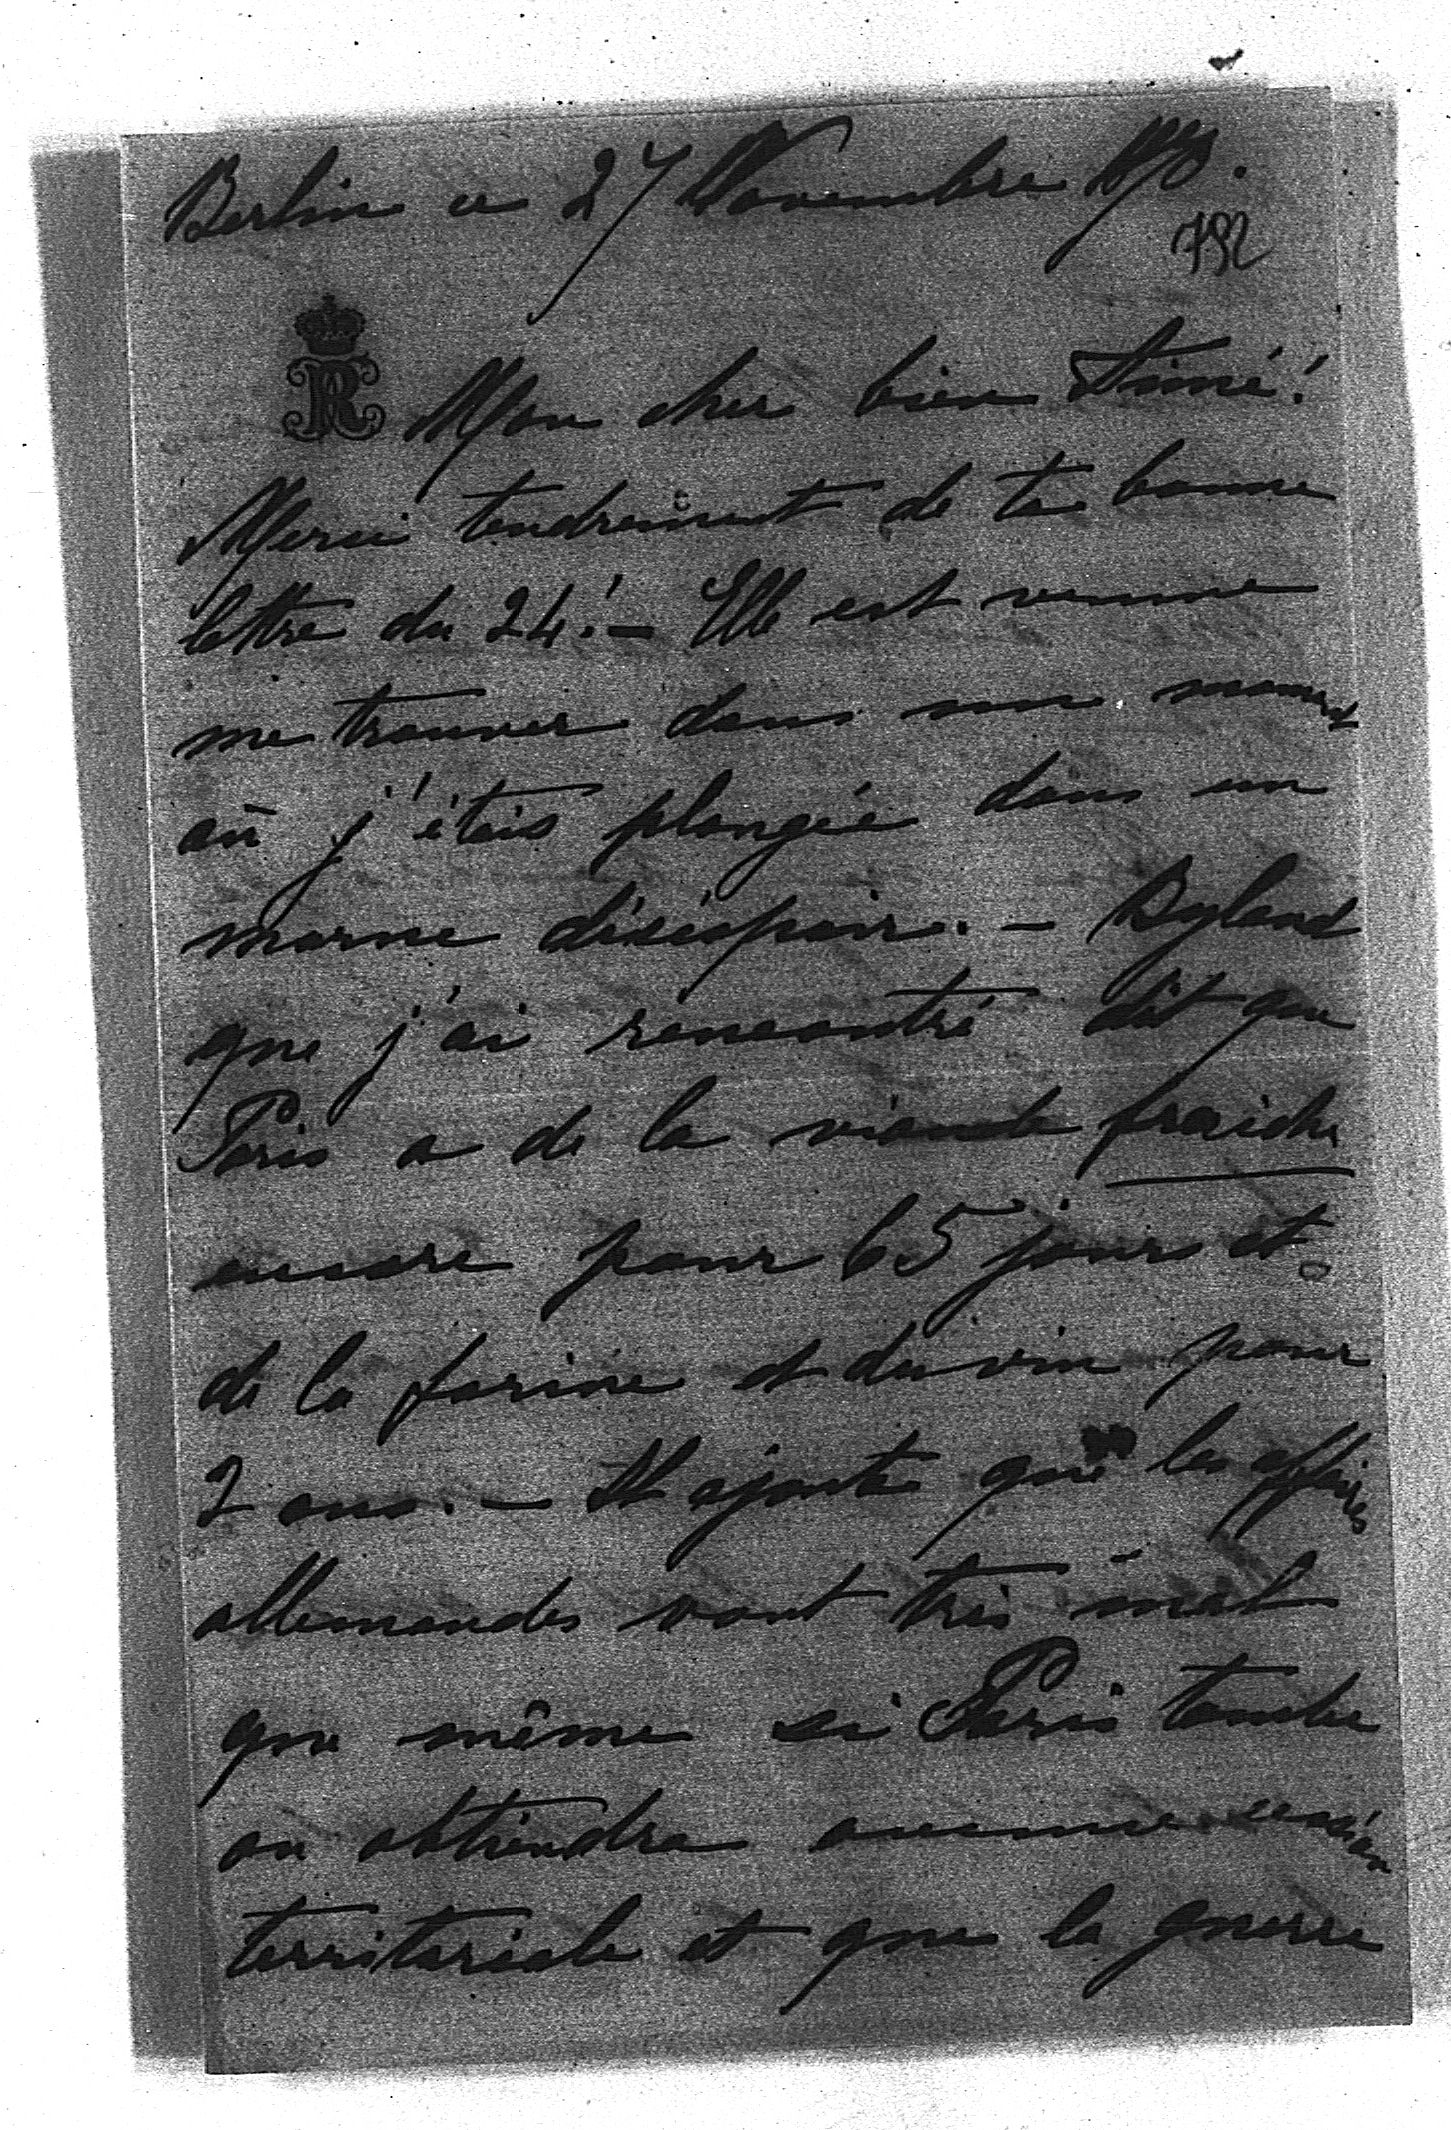 Berlin ce 27 Novembre 1870.
792
R Mon cher bien Aimé!
Merci tendrement de ta bonne
lettre du 24!- Elle est venue
me trouver dans un moment
où j'étais plongée dans un
morne désespoir. - Byland
que j'ai rencontré dit que
Paris a de la viande fraiche
encore pour 65 jours et
de la farine et du vin pour
2 ans. - Il ajoute que les affaires
allemandes vont très mal
que même si Paris tombe
on obtiendra aucune cession
territoriale et que la guerre